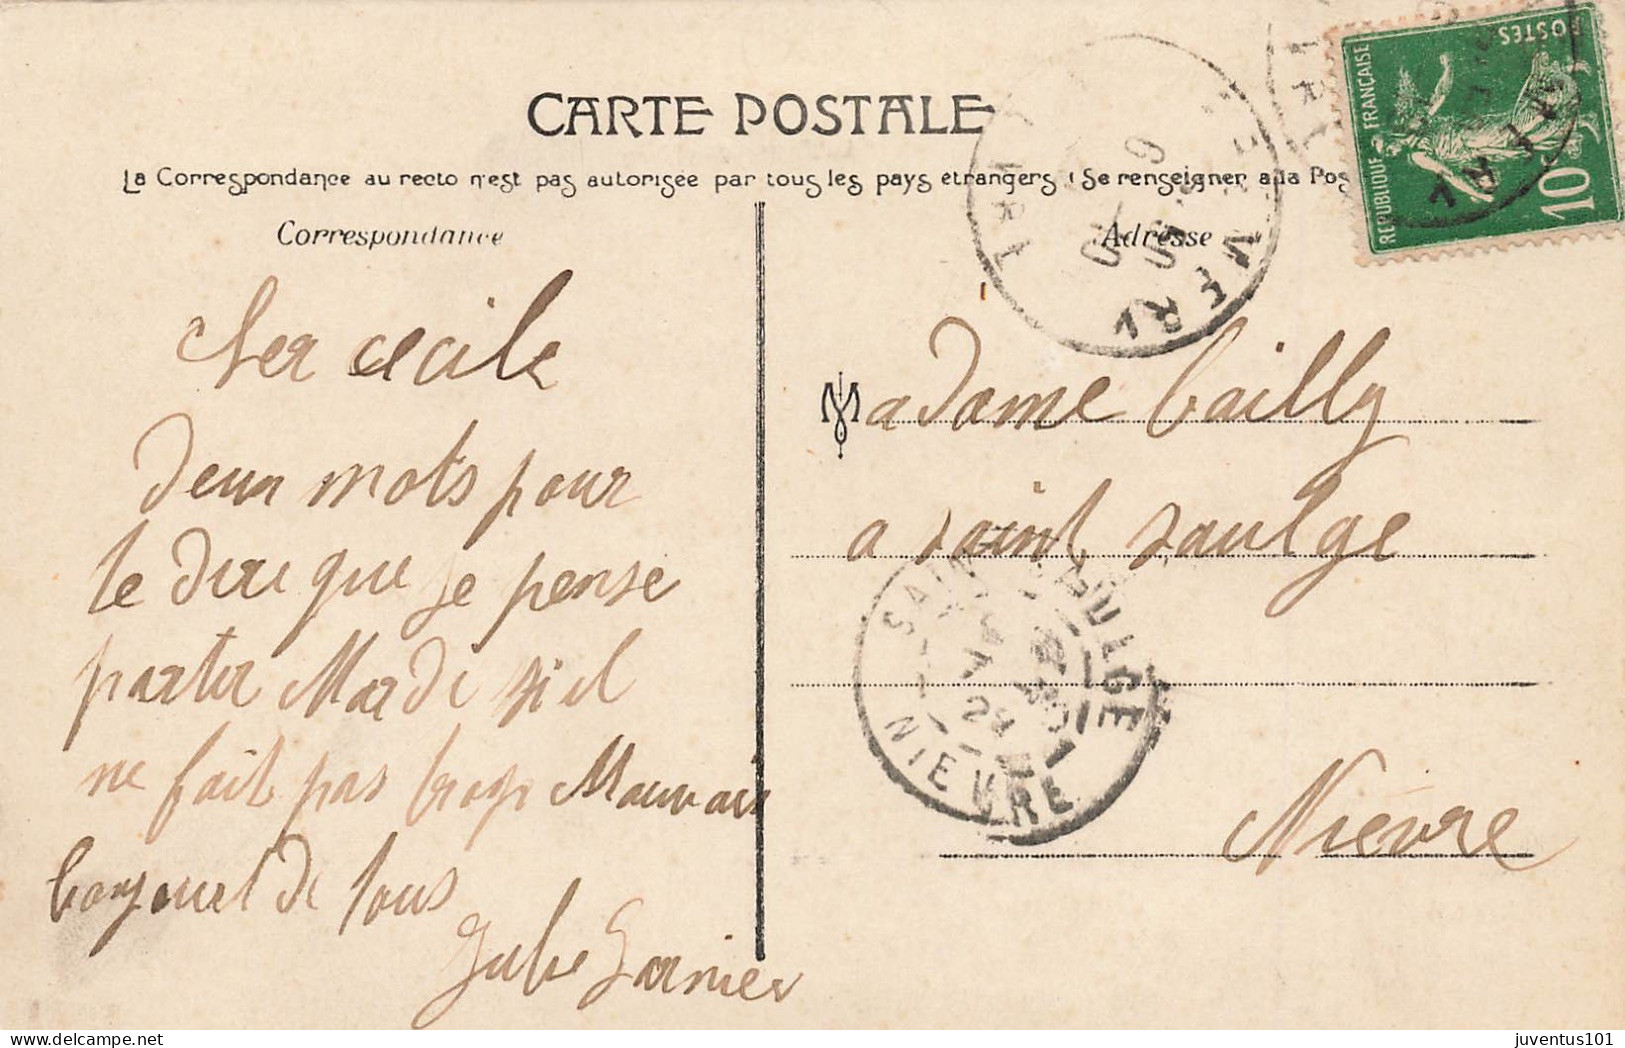 CARTE POSTALE
La Correspondance au recto n'est pas autorisée par tous les pays étrangers (Se renseigner a la Pos
Correspondance
Adresse
RÉPUBLIQUE FRANÇAISE
POSTES
10c
Cher cecile
deux mots pour
te dire que je pense
partir Mardi si il
ne fait pas trop Mauvais
bonjour de tous
Garnier
Madame bailly
a saint saulge
Nièvre
SAINT SAULGE
NIEVRE
juventus101